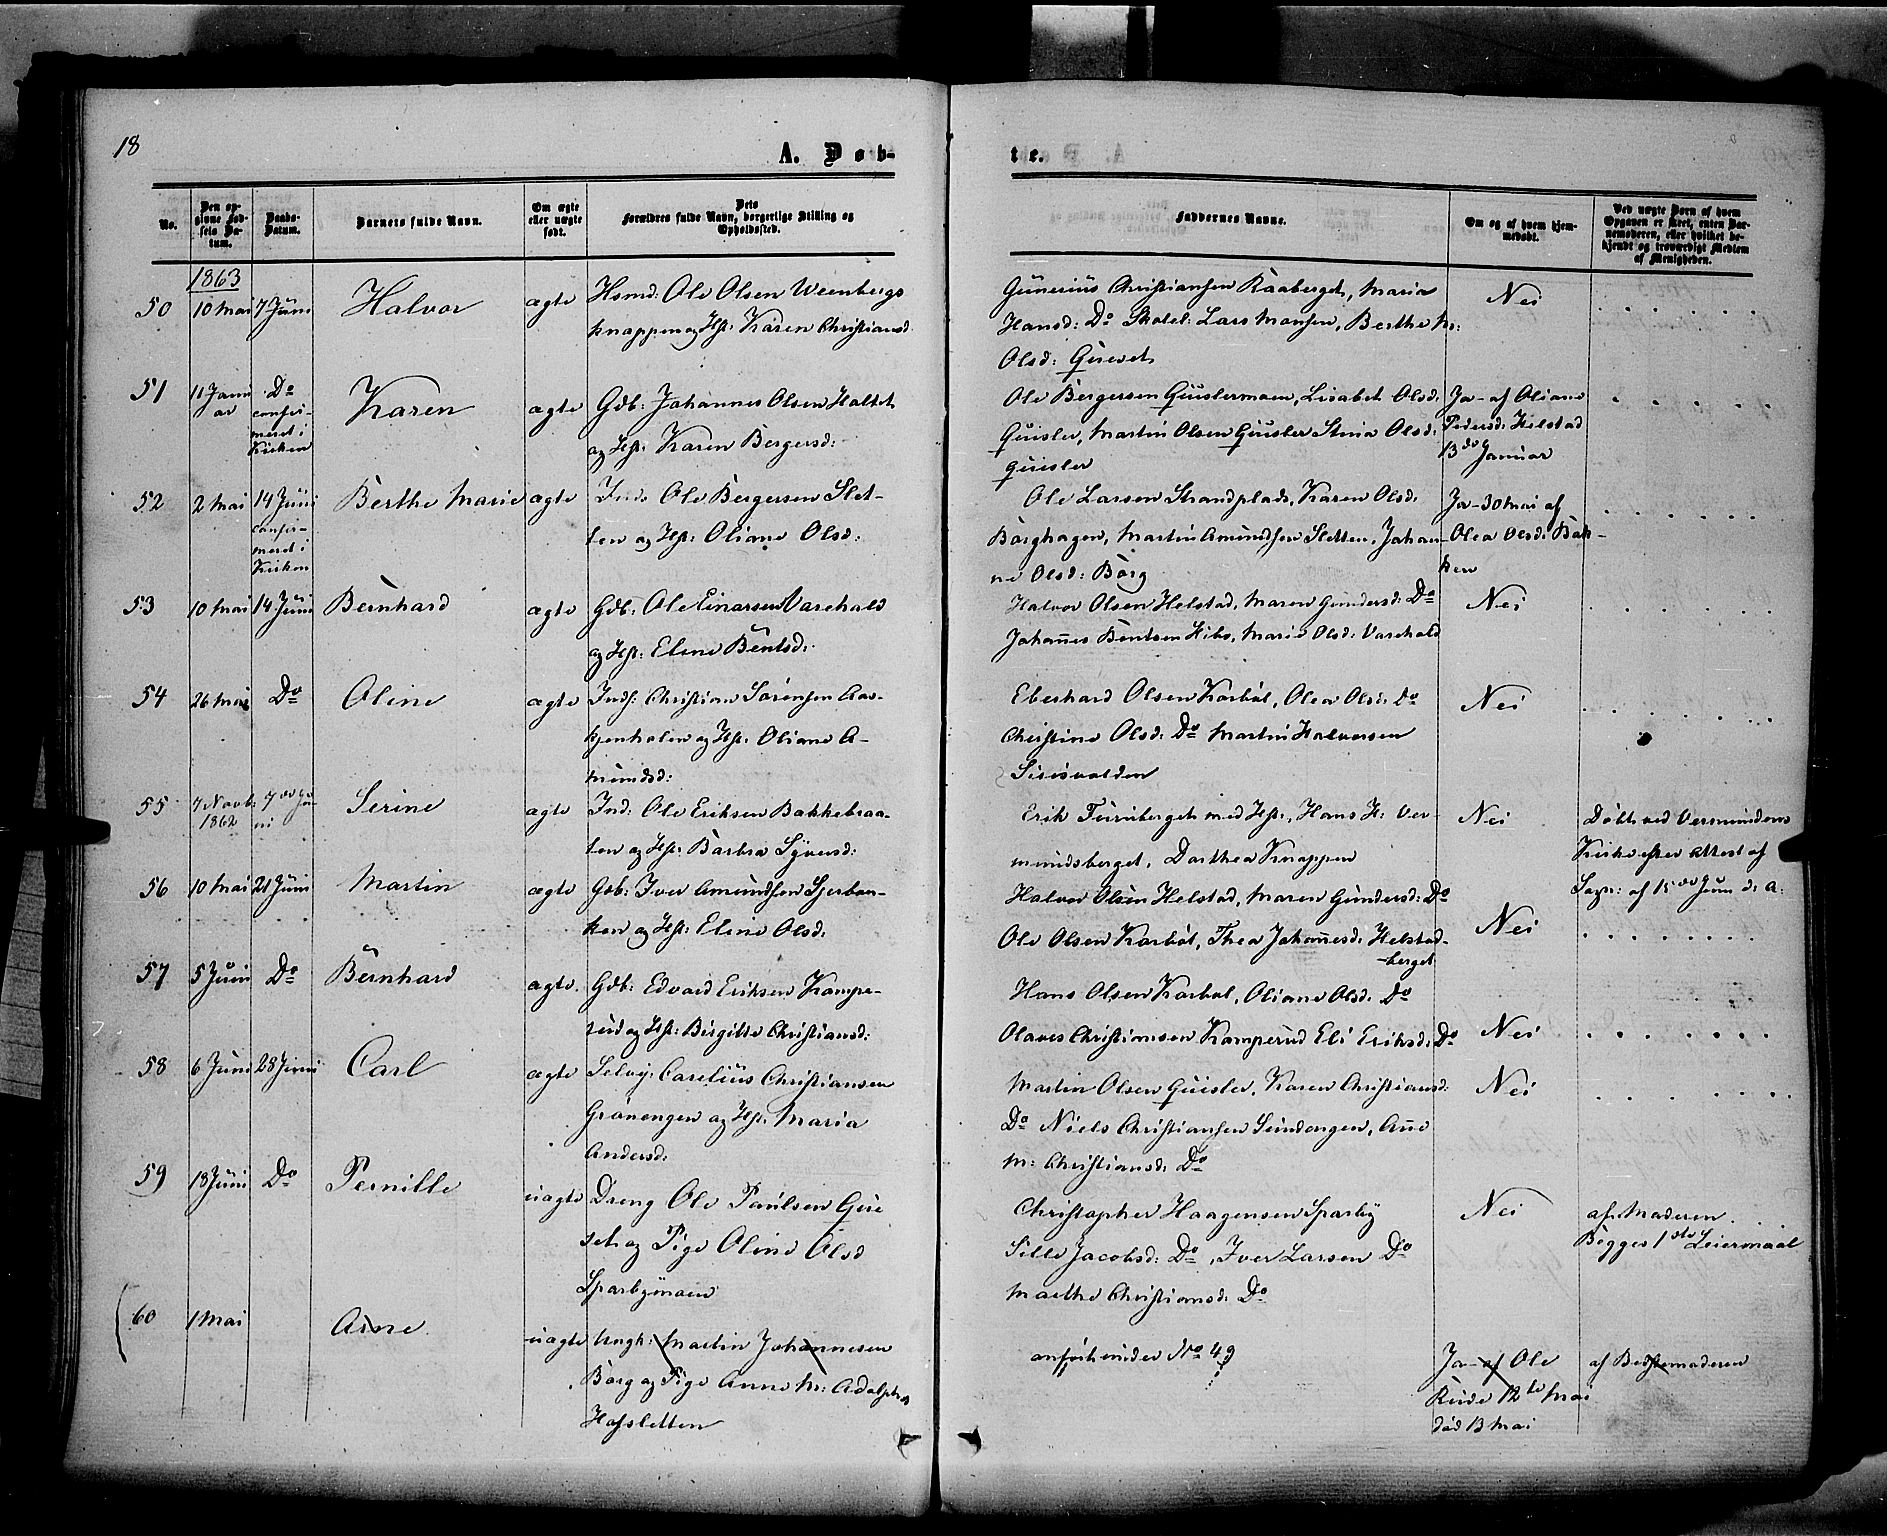 18
A. Døb-
te.
No.
Den op-
givne Fød-
sels Da-
tum.
Daabs-
Datum.
Barnets fulde Navn.
Om ægte
eller uægte
født.
Dets
Forældres fulde Navn, borgerlige Stilling og
Opholdssted.
Faddernes Navne.
Om og af hvem hjem-
medøbt.
Ved uægte Børn af hvem
Opgaven er skeet, enten Bar-
nemoderen, eller hvilket be-
kjendt og troværdigt Medlem
af Menigheden.
1863
50 10 Mai 7 Juni Halvor ægte Hsmd: Ole Olsen Weenbergs
knappen og Hst: Karen Christiansd:
Gunerius Christiansen Raaberget, Maria
Hansd: Do Skolel: Lars Monsen, Berthe M:
Olsd: Guuset
Nei
51 11 Janu
ar
Do
confir-
meret i
Kirken
Karen ægte Gdb: Johannes Olsen Haltet
og Hst: Karen Bergersd:
Ole Bergersen Guislermoen, Lisabet Olsd:
Guisler, Martin Olsen Guisler Stina Olsd:
Guisler
Ja - af Oliane
Pedersd: Helstad
13de Januar
52 2 Mai 14 Juni
confir-
meret i
Kirken
Berthe Marie ægte Ind: Ole Bergersen Slet-
ten og Hst: Oliane Olsd:
Ole Larsen Strandplads, Karen Olsd:
Borghagen, Martin Amundsen Sletten, Johan-
ne Olsd: Borg
Ja - 30 Mai af
Olea Olsd: Bak-
ken
53 10 Mai 14 Juni Bernhard ægte Gdb: Ole Einarsen Varehald
og Hst: Eline Bentsd:
Halvor Olsen Helstad, Maren Gundersd: Do
Johannes Bentsen Kibo, Marie Olsd: Varehald
Nei
54 26 Mai Do Oline ægte Inds: Christian Sørensen Aas-
kjenholen og Hst: Oliane A-
mundsd:
Eberhard Olsen Karbøl, Olea Olsd: Do
Christine Olsd: Do Martin Halvorsen
Sirisvolden
Nei
55 7 Novb:
1862
7de Ju-
ni
Serine ægte Ind: Ole Eriksen Bakkebraa-
ten og Hst: Barbra Syversd:
Erik Furuberget med Hst:, Hans H: Ver-
mundsberget, Dorthea Knappen
Nei
Døbt ved Vermundens
Kirke efter Attest af
Sogn: af 15de Juni d: A:
56 10 Mai 21 Juni Martin ægte Gdb: Iver Amundsen Sjerban-
ken og Hst: Eline Olsd:
Halvor Olsen Helstad, Maren Gundersd: Do
Ole Olsen Karbøl, Thea Johannesd: Helstad-
berget
Nei
57 5 Juni Do Bernhard ægte. Gdb: Edvard Eriksen Kampe-
rud og Hst: Birgitte Christiansd:
Hans Olsen Karbøl, Oliane Olsd: Do
Olaves Christiansen Kamperud Eli Eriksd: Do
Nei
58 6 Juni 28 Juni Carl ægte Selvej: Carelius Christiansen
Grønengen og Hst: Maria
Andersd:
Martin Olsen Guisler, Karen Christiansd:
Do Niels Christiansen Sundengen, Anne
M: Christiansd: Do
Nei
59 18 Juni Do Pernille uægte Dreng Ole Paulsen Gui
set og Pige Oline Olsd
Sparbymoen
Christopher Haagensen Sparby
Sille Jacobsd: Do, Iver Larsen Do
Marthe Christiansd: Do
Nei
af Moderen
Begges 1ste Leiermaal
60 1 Mai Arne uægte Ungk: Martin Johannesen
Borg og Pige Anne M: Adolphsd
Hofsletten
anført under No 49
Ja - af Ole
Rude 12te Mai
død 13 Mai
af Bedstemoderen